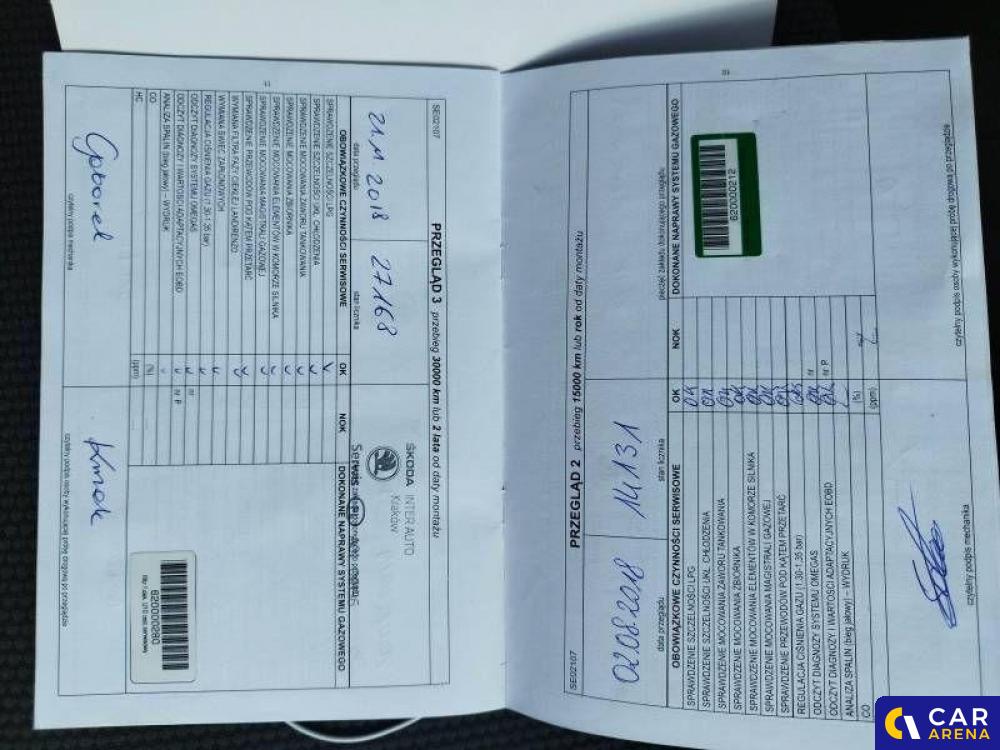 SE02107
PRZEGLĄD 3 przebieg 30000 km lub 2 lata od daty montażu
21.11 2018
27168
ŠKODA INTER AUTO
Kraków
data przeglądu
stan licznika
Serwis
OBOWIĄZKOWE CZYNNOŚCI SERWISOWE
OK
NOK
DOKONANE NAPRAWY SYSTEMU GAZOWEGO
SPRAWDZENIE SZCZELNOŚCI LPG
SPRAWDZENIE SZCZELNOŚCI UKŁ. CHŁODZENIA
SPRAWDZENIE MOCOWANIA ZAWORU TANKOWANIA
SPRAWDZENIE MOCOWANIA ZBIORNIKA
SPRAWDZENIE MOCOWANIA ELEMENTÓW W KOMORZE SILNIKA
SPRAWDZENIE MOCOWANIA MAGISTRALI GAZOWEJ
SPRAWDZENIE PRZEWODÓW POD KĄTEM PRZETARĆ
WYMIANA FILTRA FAZY CIEKŁEJ LANDIRENZO
WYMIANA ŚWIEC ZAPŁONOWYCH
REGULACJA CIŚNIENIA GAZU (1.30-1.35 bar)
ODCZYT DIAGNOZY SYSTEMU OMEGAS
nr
ODCZYT DIAGNOZY I WARTOŚCI ADAPTACYJNYCH EOBD
nr P
ANALIZA SPALIN (bieg jałowy) – WYDRUK
CO
(%)
HC
(ppm)
620000280
czytelny podpis mechanika
czytelny podpis osoby wykonującej próbę drogową po przeglądzie
11
SE02107
PRZEGLĄD 2 przebieg 15000 km lub rok od daty montażu
02.08.2018
14131
data przeglądu
stan licznika
pieczęć zakładu dokonującego przeglądu
OBOWIĄZKOWE CZYNNOŚCI SERWISOWE
OK
NOK
DOKONANE NAPRAWY SYSTEMU GAZOWEGO
SPRAWDZENIE SZCZELNOŚCI LPG
SPRAWDZENIE SZCZELNOŚCI UKŁ. CHŁODZENIA
SPRAWDZENIE MOCOWANIA ZAWORU TANKOWANIA
SPRAWDZENIE MOCOWANIA ZBIORNIKA
SPRAWDZENIE MOCOWANIA ELEMENTÓW W KOMORZE SILNIKA
SPRAWDZENIE MOCOWANIA MAGISTRALI GAZOWEJ
SPRAWDZENIE PRZEWODÓW POD KĄTEM PRZETARĆ
REGULACJA CIŚNIENIA GAZU (1.30-1.35 bar)
ODCZYT DIAGNOZY SYSTEMU OMEGAS
nr
ODCZYT DIAGNOZY I WARTOŚCI ADAPTACYJNYCH EOBD
nr P
ANALIZA SPALIN (bieg jałowy) – WYDRUK
CO
(%)
(ppm)
620000212
czytelny podpis mechanika
czytelny podpis osoby wykonującej próbę drogową po przeglądzie
CAR
ARENA